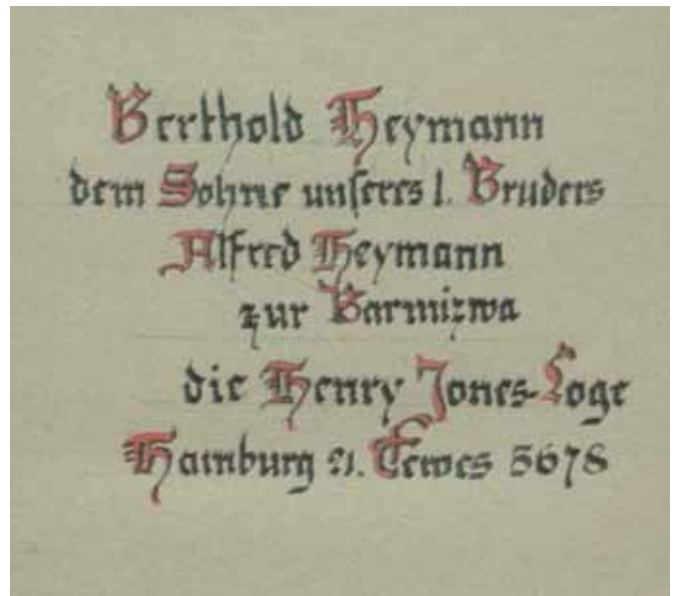 Berthold Heymann
dem Sohne unseres l. Bruders
Alfred Heymann
zur Barmizwa
die Henry Jones-Loge
Hamburg 21. Tewes 5678